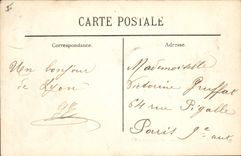 CARTE POSTALE
Correspondance.
Adresse.
Un bonjour
de Lyon
Mademoiselle
Victorine
64 rue Pigalle
Paris 9e arrt